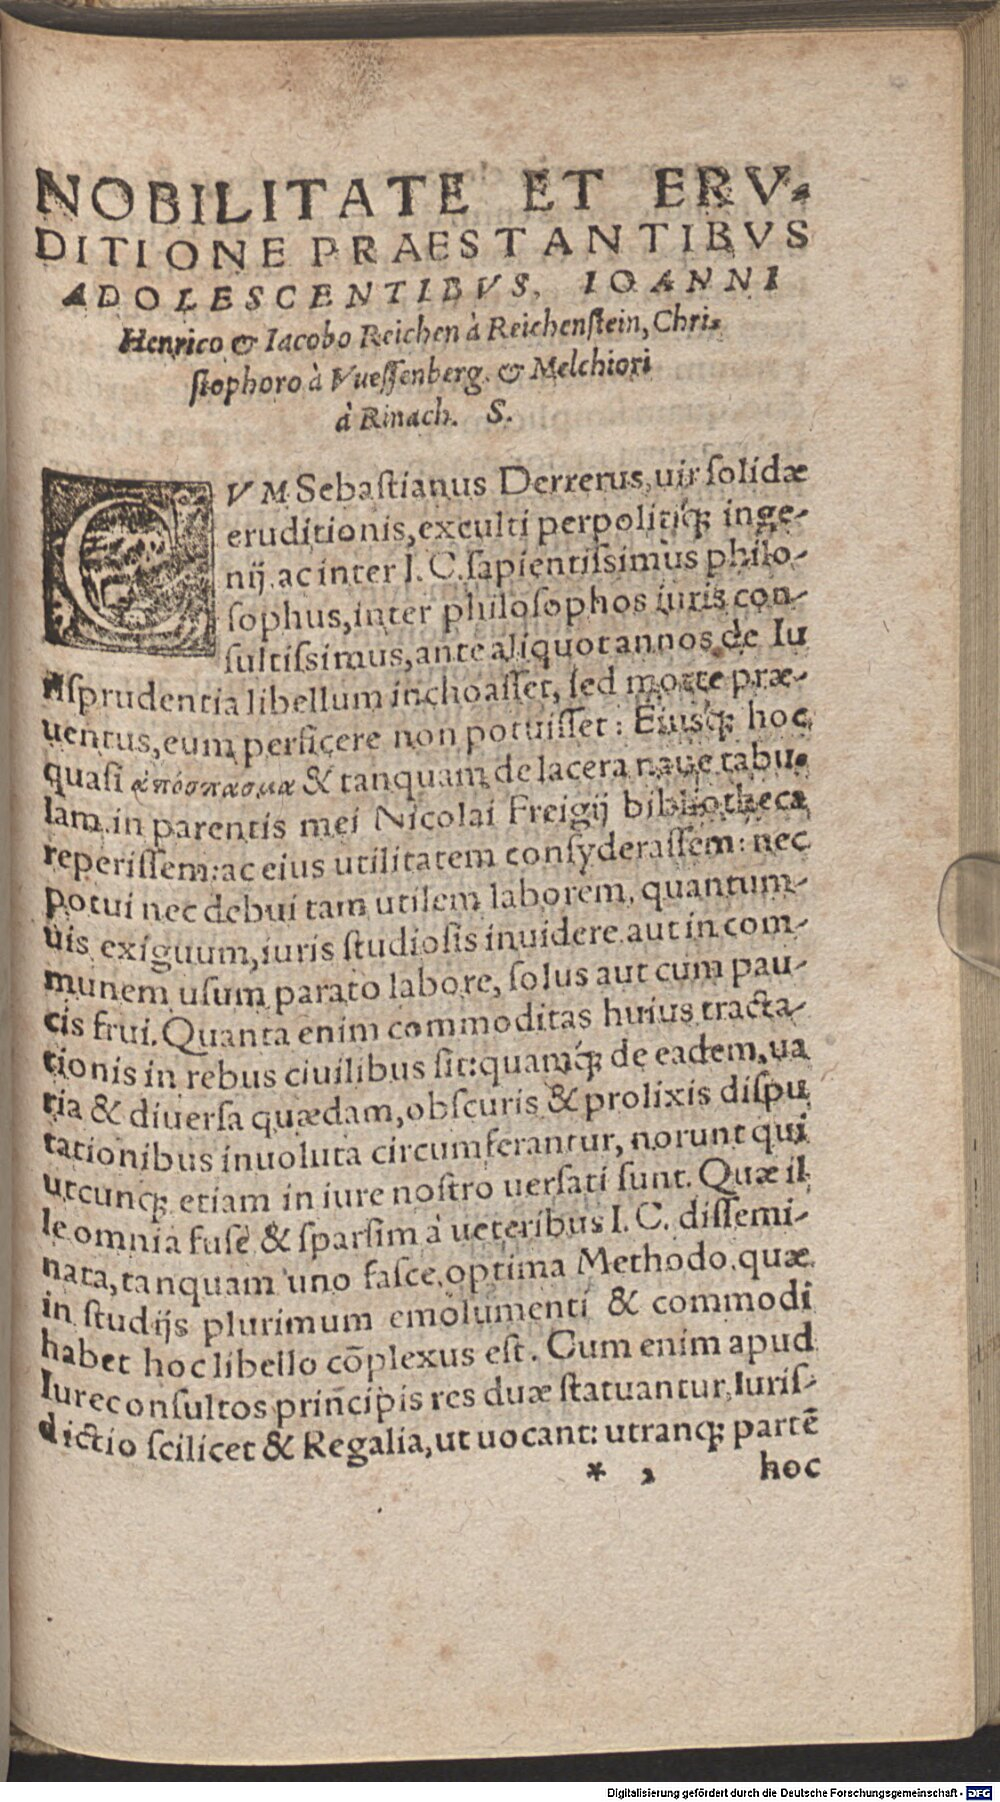 NOBILITATE ET ERV-
DITIONE PRAESTANTIBVS
ADOLESCENTIBVS, IOANNI
Henrico & Iacobo Reichen à Reichenstein, Chri-
stophoro à Vuessenberg, & Melchiori
à Rinach. S.
CVM Sebastianus Derrerus, uir solidæ
eruditionis, exculti perpolitiq́; inge-
nij, ac inter I. C. sapientissimus philo-
sophus, inter philosophos iuris con-
sultissimus, ante aliquot annos, de Iu
risprudentia libellum inchoasset, sed morte præ-
uentus, eum perficere non potuisset: Eiusq́; hoc
quasi ἀπόσπασμα & tanquam de lacera naue tabu-
lam, in parentis mei Nicolai Freigij bibliotheca
reperissem: ac eius utilitatem consyderassem: nec
potui nec debui tam utilem laborem, quantum-
uis exiguum, iuris studiosis inuidere aut in com-
munem usum parato labore, solus aut cum pau-
cis frui. Quanta enim commoditas huius tracta-
tionis in rebus ciuilibus sit: quamq́; de eadem, ua
ria & diuersa quædam, obscuris & prolixis dispu
tationibus inuoluta circumferantur, norunt qui
utcunq; etiam in iure nostro uersati sunt. Quæ il
le omnia fusè & sparsim à ueteribus I. C. dissemi-
nata, tanquam uno fasce, optima Methodo, quæ
in studijs plurimum emolumenti & commodi
habet hoc libello cōplexus est. Cum enim apud
Iureconsultos principis res duæ statuantur, Iuris-
dictio scilicet & Regalia, ut uocant: utranq; partē
* 2 hoc
Digitalisierung gefördert durch die Deutsche Forschungsgemeinschaft - DFG